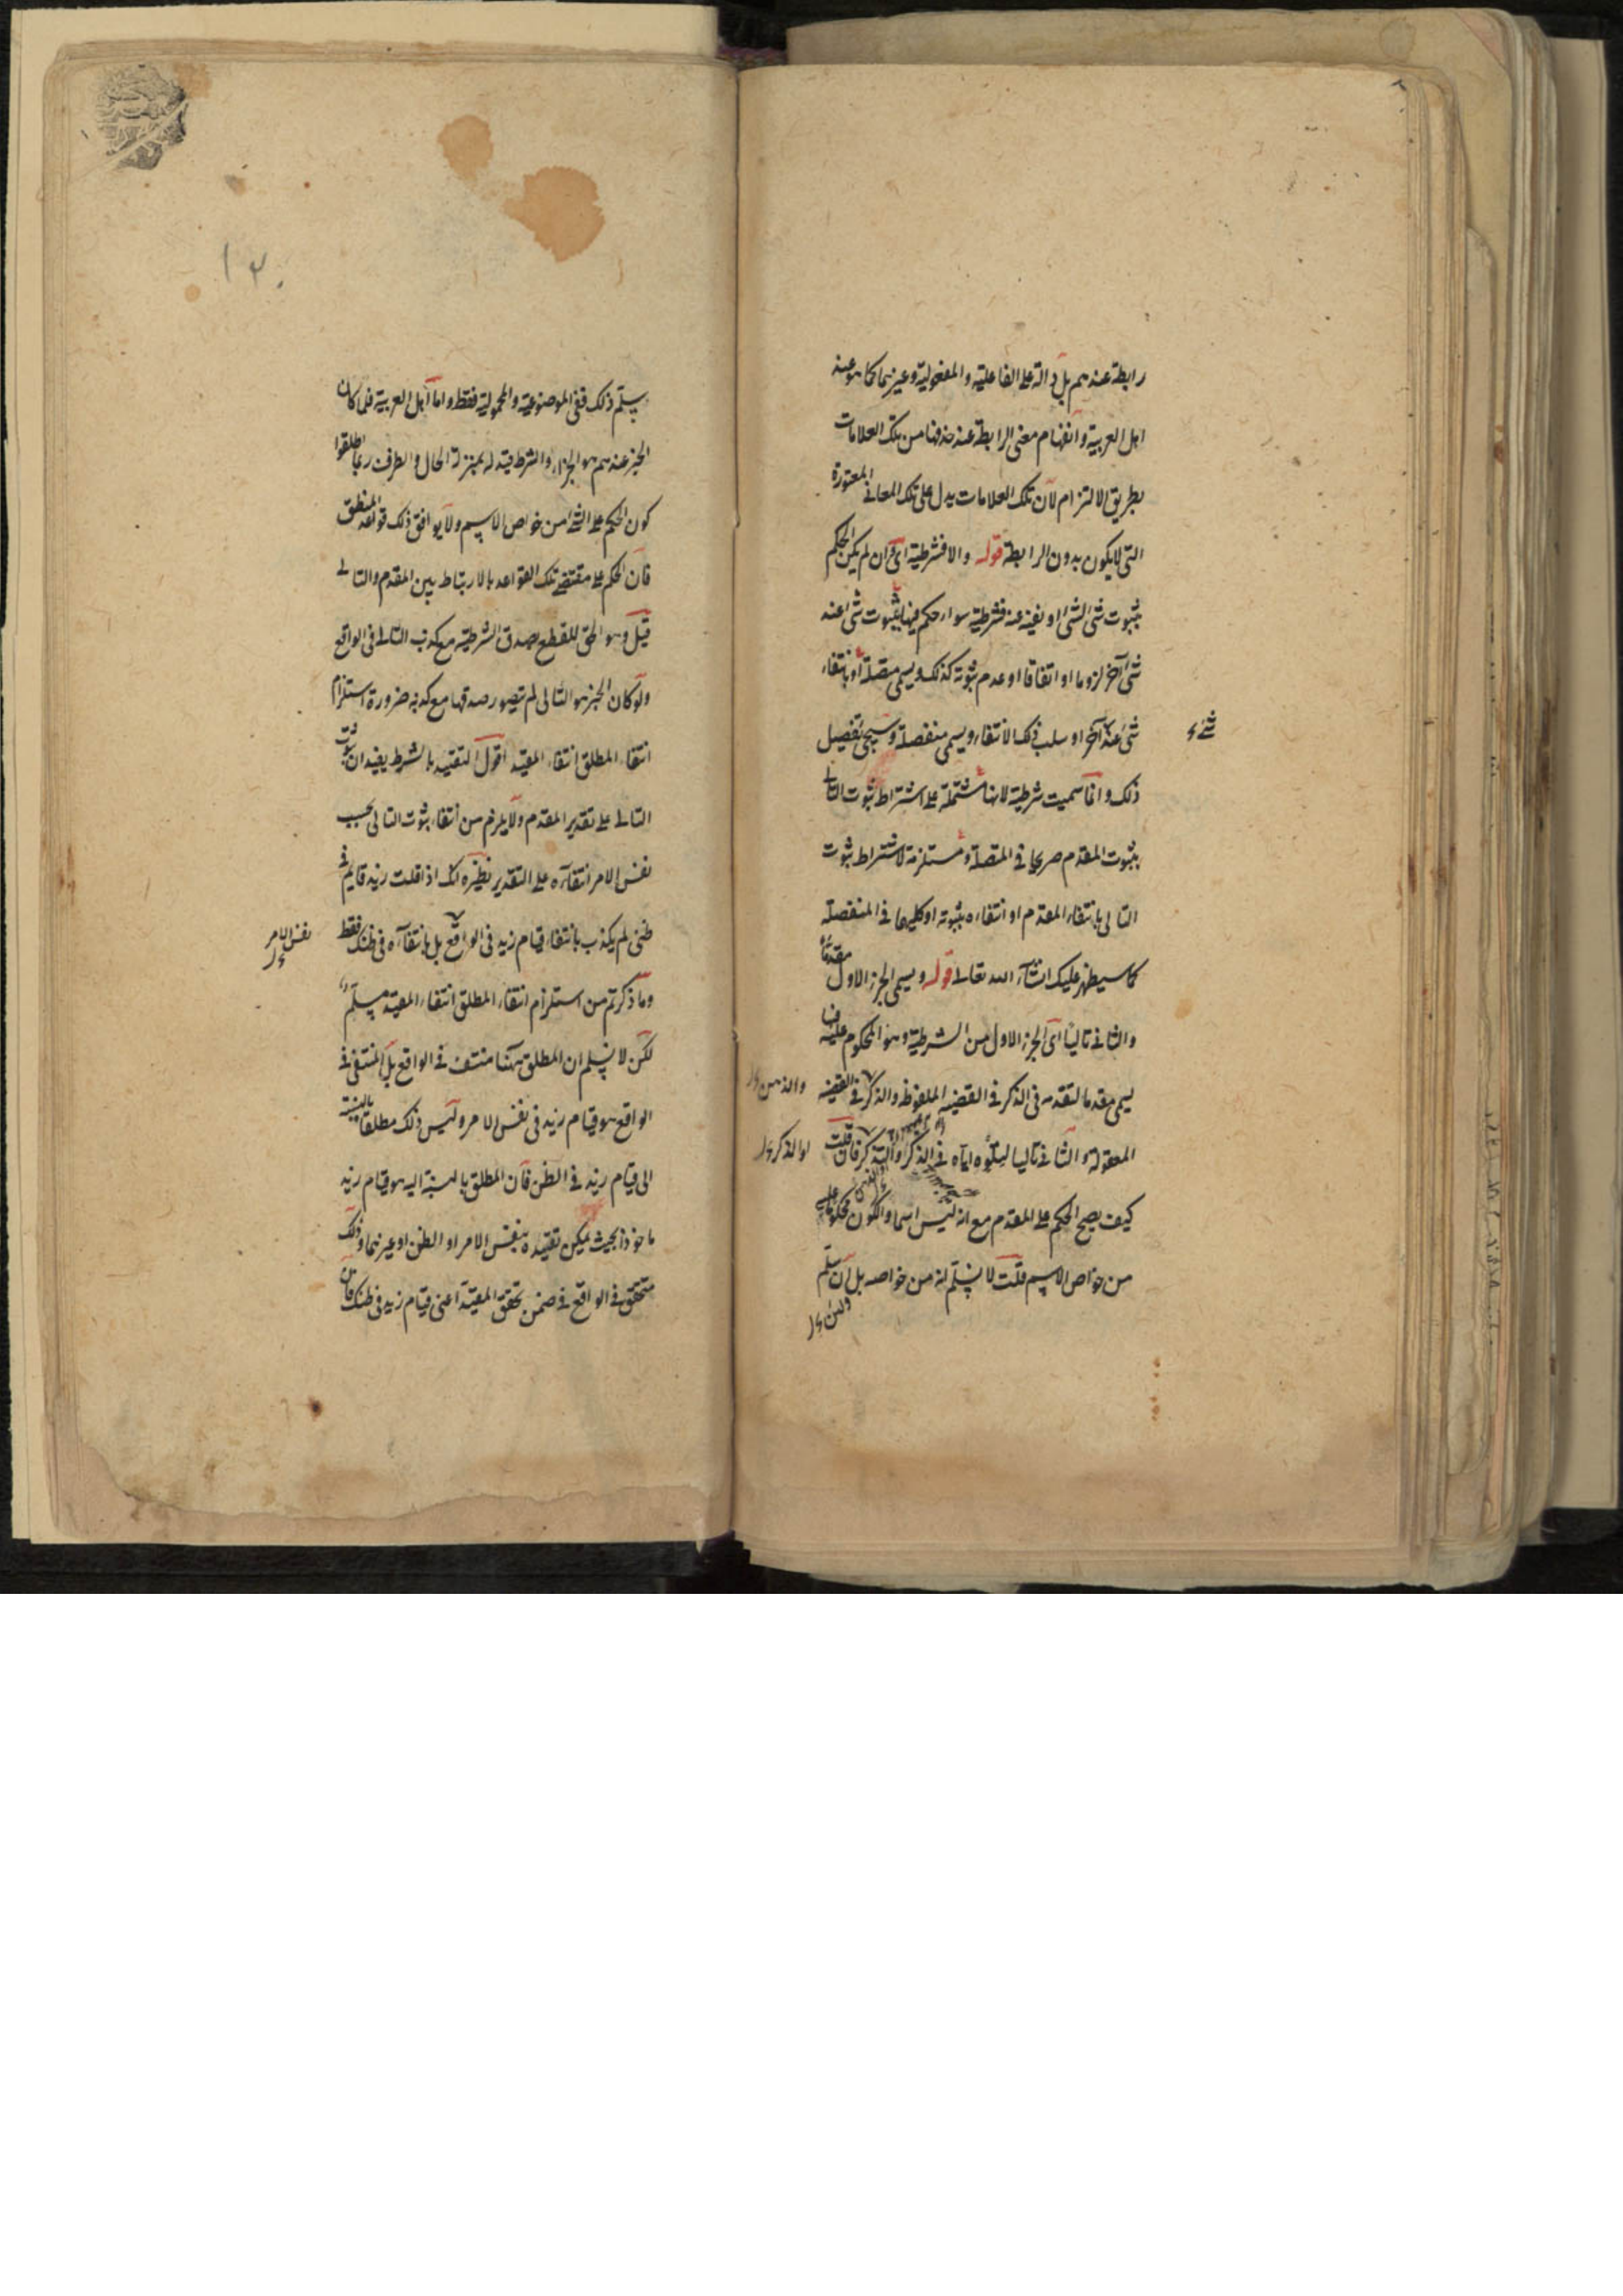 رابطة عندهم بل دالة على الفاعلية والمفعولية وغيرهما كما هو عند
اهل العربية وانفهام معنى الرابطة عند حذفها من تلك العلامات
بطريق الالتزام لان تلك العلامات يدل على تلك المعاني المعتورة
التى لا يكون بدون الرابطة قوله والا فشرطية اى وان لم يكن الحكم
بثبوت شئ لشئ او نفيه عنه فشرطية سواء حكم فيها بثبوت شئ عند
شئ آخر لزوما او اتفاقا او عدم ثبوته كذلك ويسمى متصلة او بانتفاء
شئ عند آخر او سلب ذلك الانتفاء ويسمى منفصلة وسيجئ تفصيل
شئ
ذلك وانما سميت شرطية لانها مشتملة على اشتراط ثبوت التالى
بثبوت المقدم صريحا فى المتصلة ومستلزمة لاشتراط ثبوت
التالى بانتفاء المقدم او انتفاءه بثبوته او كليهما فى المنفصلة
كما سيظهر عليك انشاء الله تعالى قوله ويسمى الجزء الاول مقدما
والثانى تاليا اى الجزء الاول من الشرطية وهو المحكوم عليه فيها
يسمى مقدما لتقدمه فى الذكر فى القضية الملفوظة والذكر فى القضية
والذهن
المعقولة والثانى تاليا لتلوه اياه فى الذكر والتذكر فان قلت
او الذكر
كيف يصح الحكم على المقدم مع انه ليس اسما والكون محكوما عليه
من خواص الاسم قلت لا نسلم انه من خواصه بل ان سلم
يسلم ذلك ففى الموضوعية والمحمولية فقط واما اهل العربية فلما كان
الخبر عندهم هو الجزاء والشرط قيد له بمنزلة الحال والظرف ربما اطلقوا
كون الحكم على الشئ من خواص الاسم ولا يوافق ذلك قواعد المنطق
فان الحكم على مقتضى تلك القواعد بالارتباط بين المقدم والتالى
قيل وهو الحق للقطع بصدق الشرطية مع كذب التالى فى الواقع
ولو كان الخبر هو التالى لم يتصور صدقها مع كذبه ضرورة استلزام
انتفاء المطلق انتفاء المقيد اقول التقييد بالشرط يفيد ان ثبوت
التالى على تقدير المقدم ولا يلزم من انتفاء ثبوت التالى بحسب
نفس الامر انتفاءه على التقدير نظيره انك اذا قلت زيد قايم فى
ظنى لم يكذب بانتفاء قيام زيد فى الواقع بل بانتفاءه فى ظنك فقط
نفس الامر
وما ذكرتم من استلزام انتفاء المطلق انتفاء المقيد مسلم
لكن لا نسلم ان المطلق ههنا منتف فى الواقع بل المنتفى فى
الواقع هو قيام زيد فى نفس الامر وليس ذلك مطلقا بالنسبة
الى قيام زيد فى الظن فان المطلق بالنسبة اليه هو قيام زيد
ماخوذا بحيث يمكن تقييده بنفس الامر او الظن او غيرهما وذلك
متحقق فى الواقع فى ضمن تحقق المقيد اعنى قيام زيد فى ظنك فان